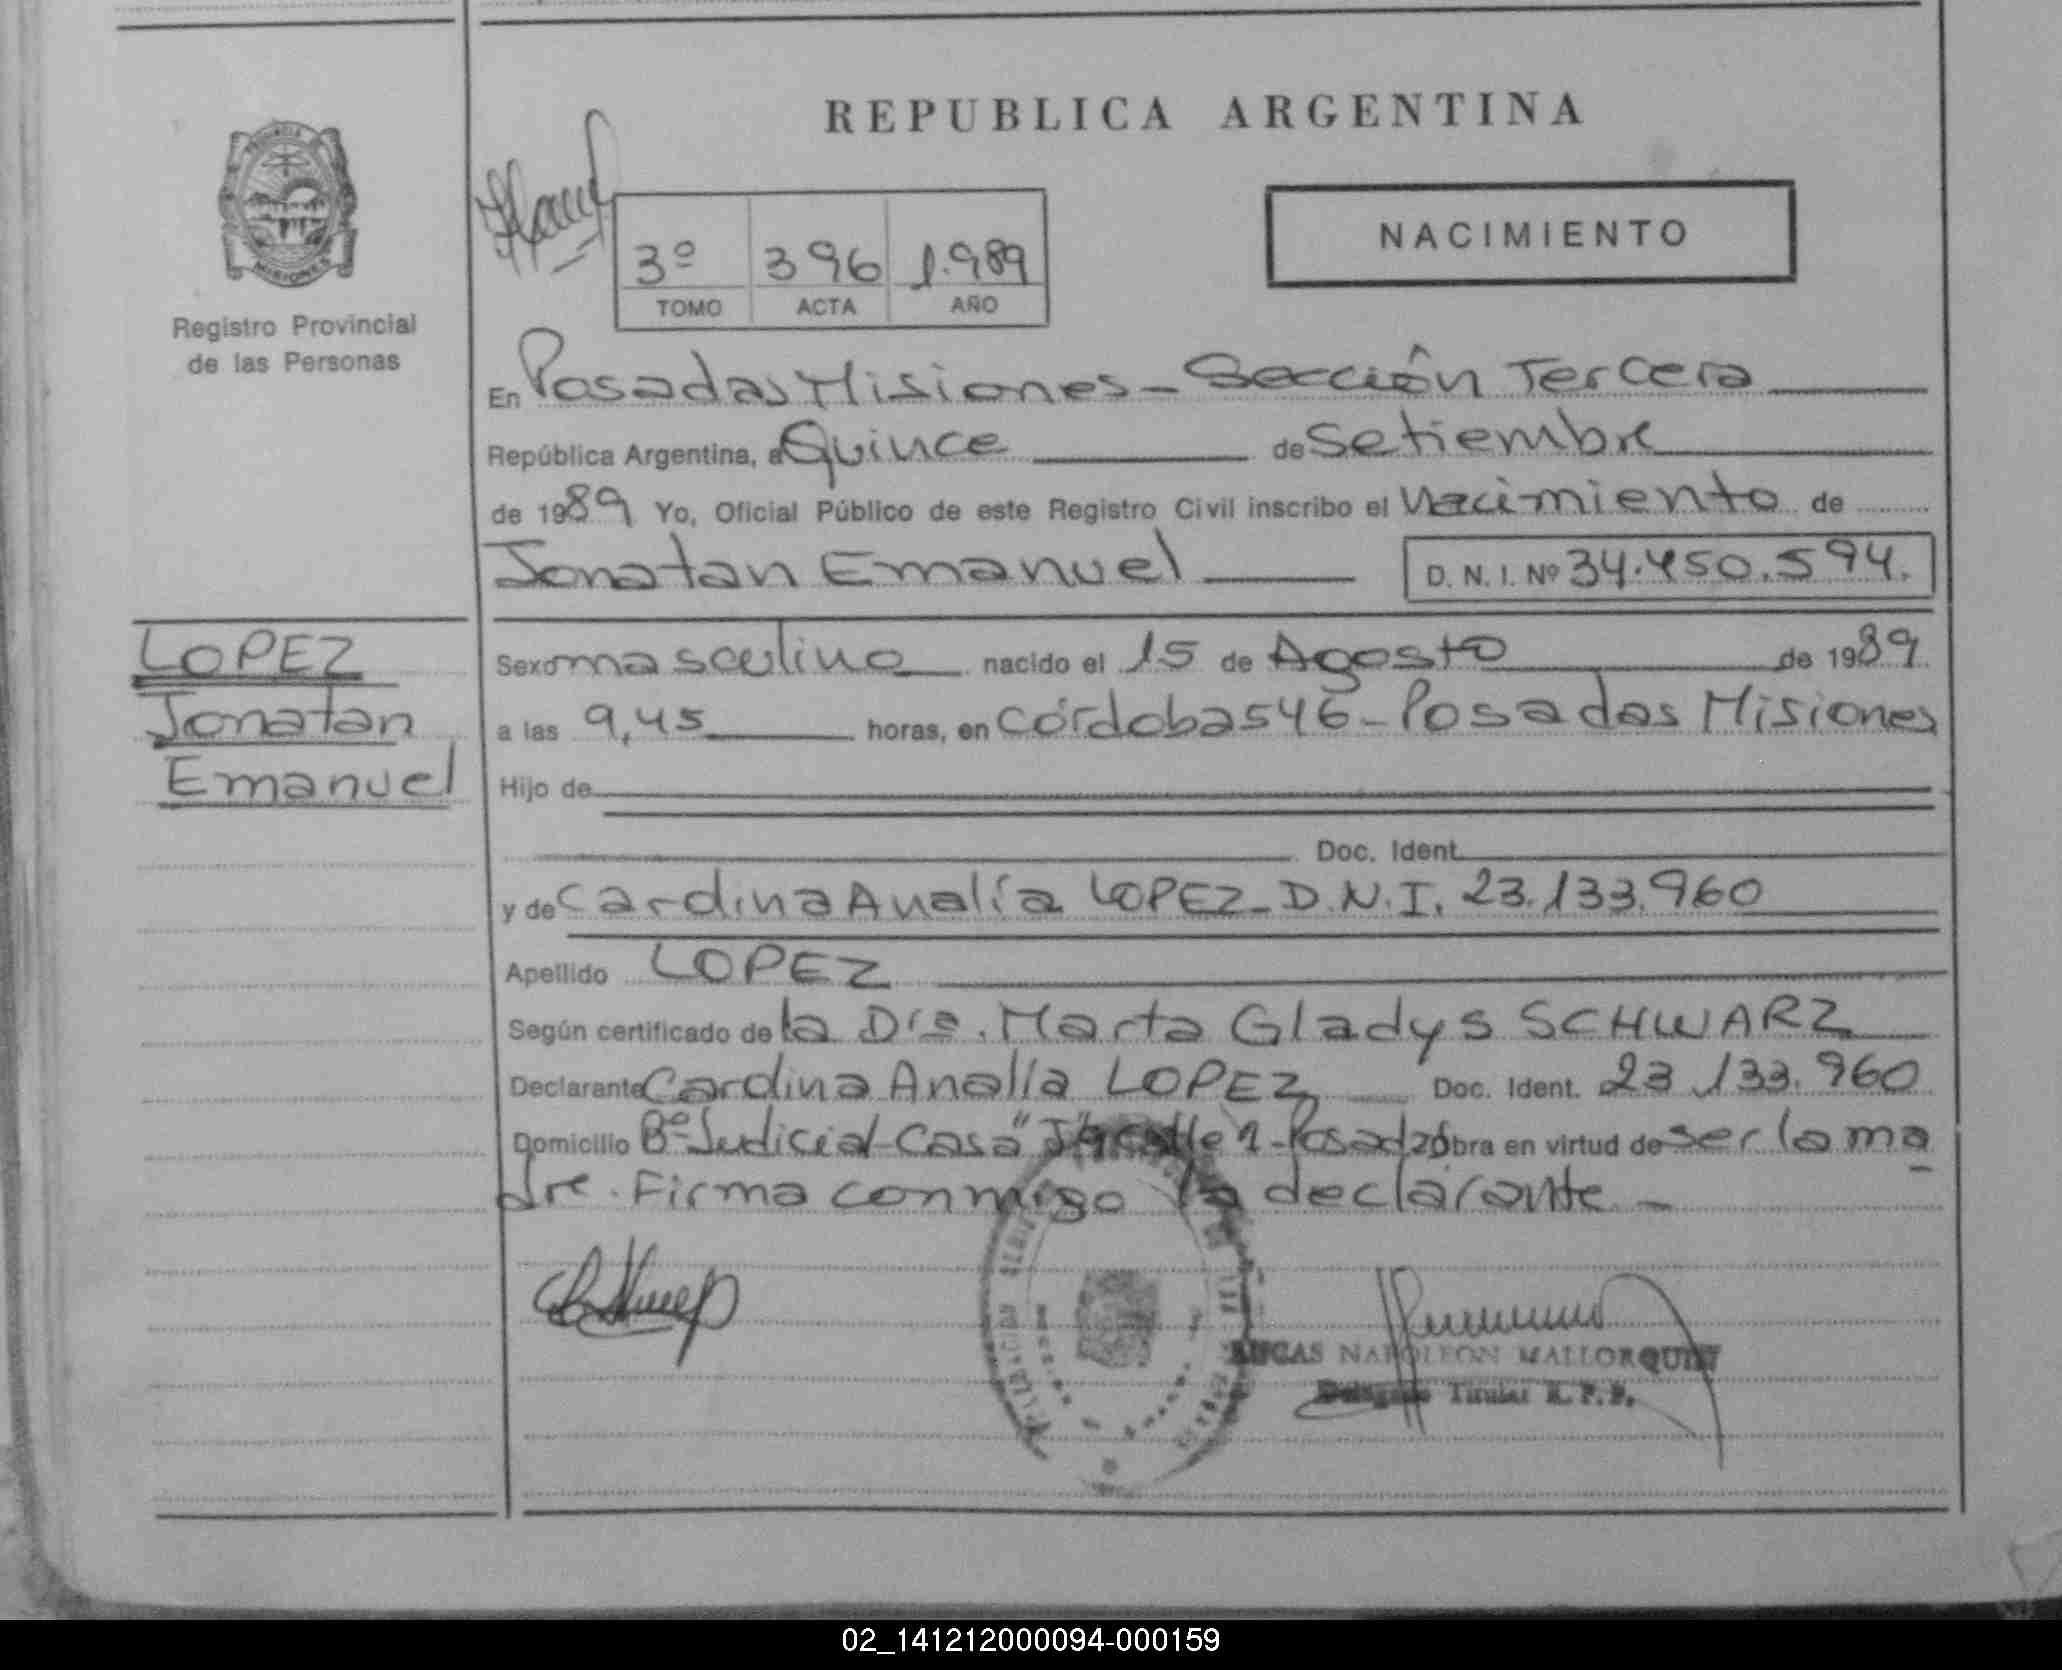 REPUBLICA ARGENTINA
PROVINCIA
MISIONES
Registro Provincial
de las Personas
3º 396 1.989
TOMO ACTA AÑO
NACIMIENTO
En Posadas Misiones - Sección Tercera
República Argentina, a Quince de Setiembre
de 1989 Yo, Oficial Público de este Registro Civil inscribo el Nacimiento de
Jonatan Emanuel D. N. I. Nº 34.450.594.
LOPEZ
Jonatan
Emanuel
Sexo masculino nacido el 15 de Agosto de 1989
a las 9,45 horas, en Córdoba 546 - Posadas Misiones
Hijo de
Doc. Ident.
y de Cardina Analía LOPEZ - D.N.I. 23.133.960
Apellido LOPEZ
Según certificado de la Dra. Marta Gladys SCHWARZ
Declarante Cardina Analía LOPEZ Doc. Ident. 23.133.960
Domicilio Bº Judicial - Casa calle 1 - Posadas Obra en virtud de ser la ma
dre. Firma conmigo la declarante -
LUCAS NAPOLEON MALLORQUIN
Delegado Titular R. P. P.
02_141212000094-000159